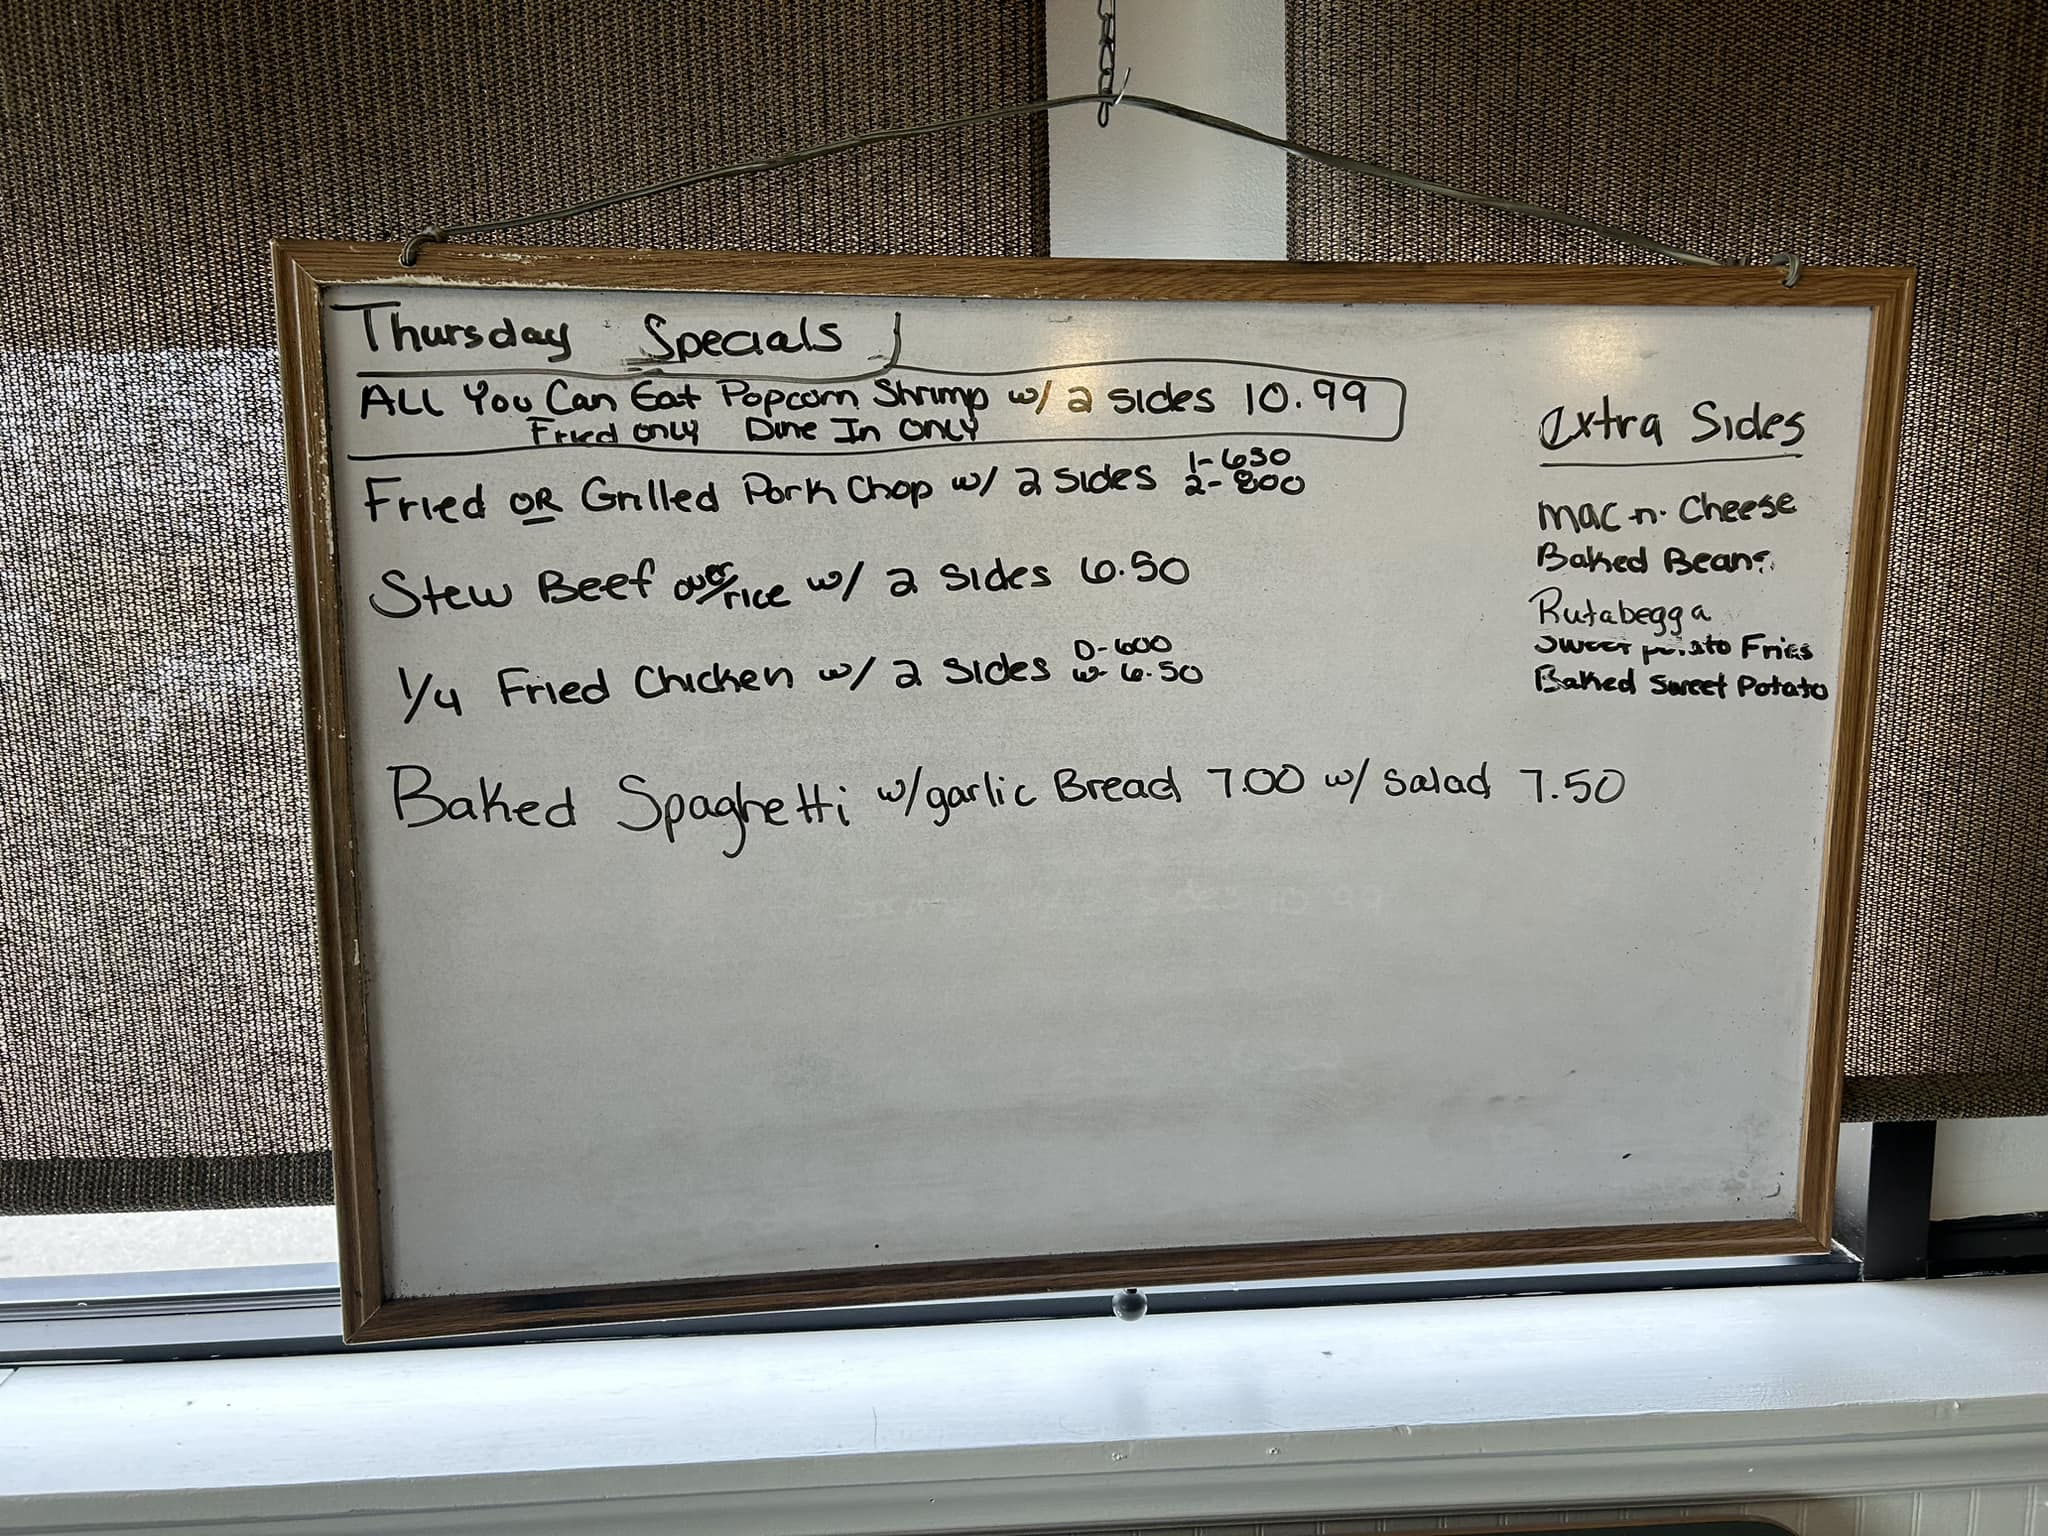 Thursday Specials
ALL You Can Eat Popcorn Shrimp w/ 2 sides 10.99
Fried only Dine In Only
Fried OR Grilled Pork Chop w/ 2 sides 1-650
2-800
Stew Beef over rice w/ 2 sides 6.50
1/4 Fried Chicken w/ 2 sides D-600
w- 6.50
Baked Spaghetti w/garlic Bread 7.00 w/ salad 7.50
extra Sides
mac n. Cheese
Baked Beans
Rutabegga
Sweet potato Fries
Baked Sweet Potato